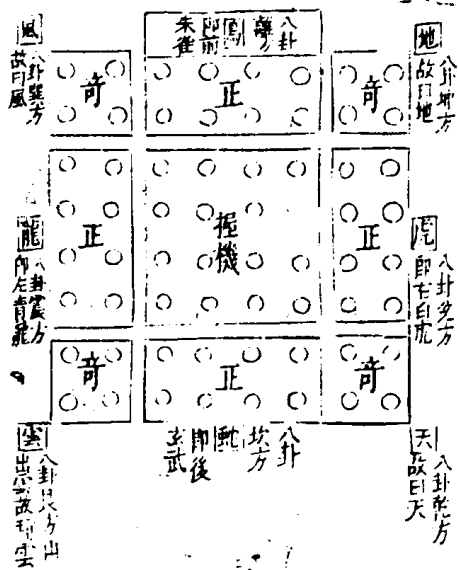 地
八卦坤方
故曰地
八卦
離方
鳳
即前
朱雀
風
八卦巽方
故曰風
奇
正
奇
虎
八卦兌方
即右白虎
正
握機
正
龍
八卦震方
即左青龍
奇
正
奇
天
八卦乾方
故曰天
八卦
坎方
蛇
即後
玄武
雲
八卦艮方山
出雲故曰雲